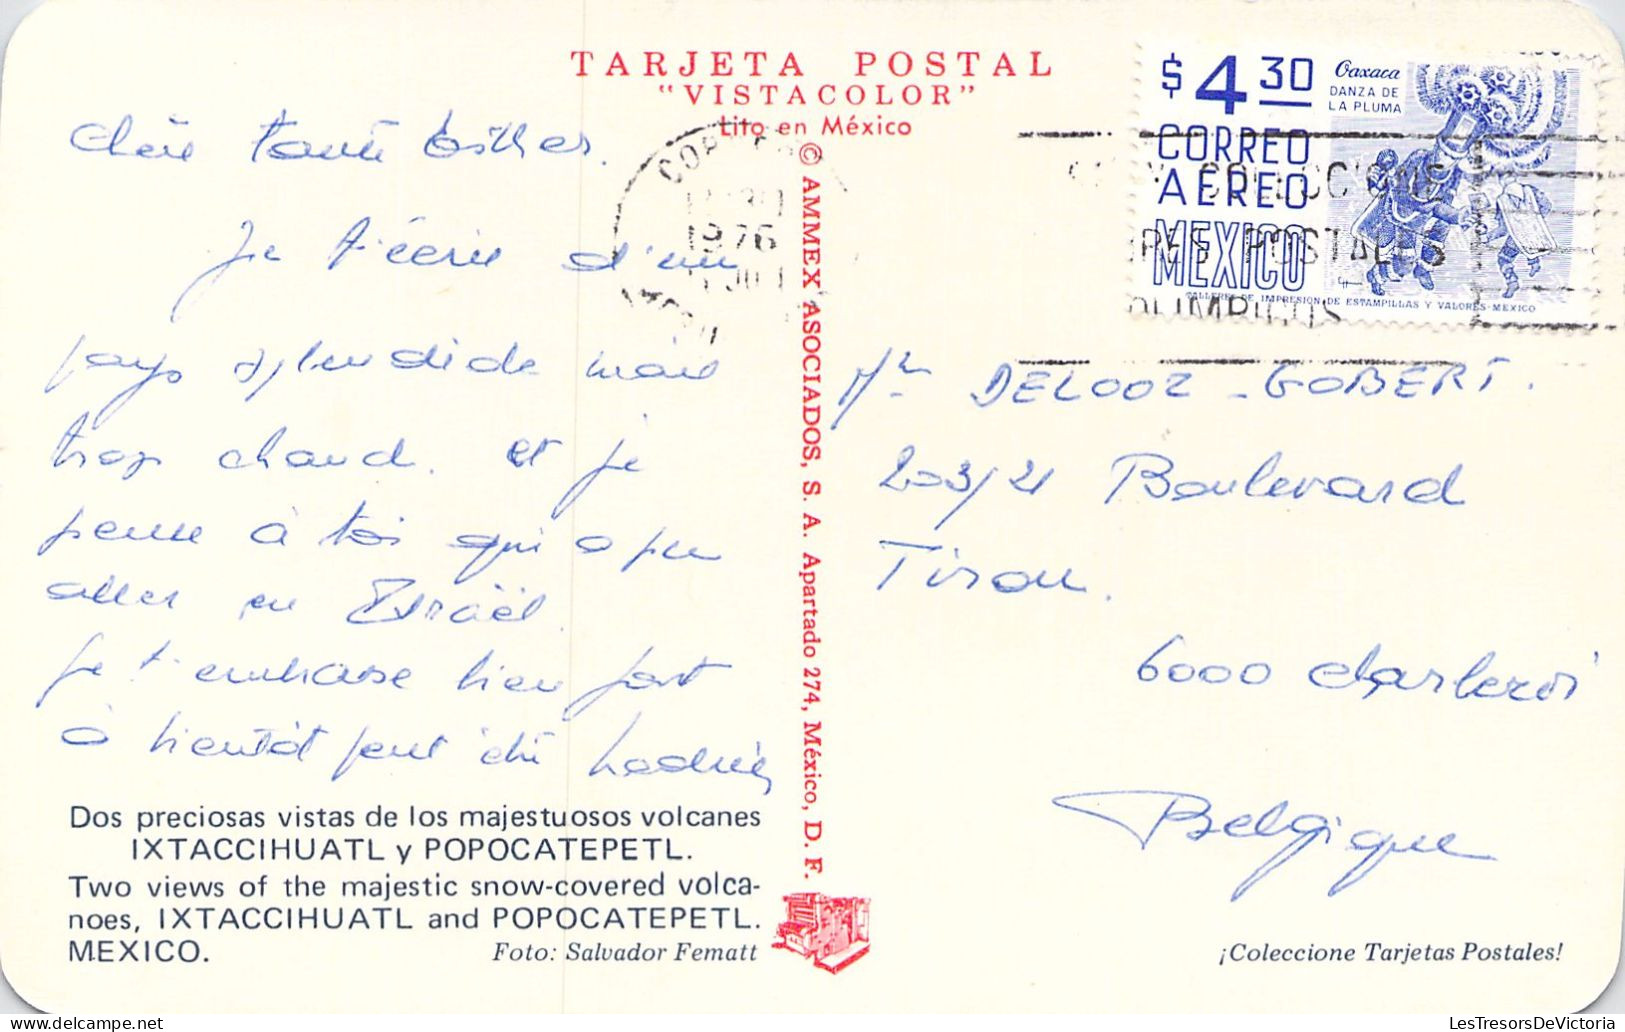 TARJETA POSTAL
"VISTACOLOR"
Lito en México
© AMMEX ASOCIADOS, S. A. Apartado 274, México, D. F.
$4.30
Oaxaca
DANZA DE
LA PLUMA
CORREO
AEREO
MEXICO
TALLERES DE IMPRESION DE ESTAMPILLAS Y VALORES-MEXICO
1976
POSTALES
Chère tante Esther.
Je t'écris d'un
pays splendide mais
trop chaud. et je
pense à toi qui a pu
aller en Israël.
Je t'embrasse bien fort
à bientôt peut être
DELOOZ-GOBERT.
203/21 Boulevard
Tirou.
6000 Charleroi
Belgique
Dos preciosas vistas de los majestuosos volcanes
IXTACCIHUATL y POPOCATEPETL.
Two views of the majestic snow-covered volca-
noes, IXTACCIHUATL and POPOCATEPETL.
MEXICO.
Foto: Salvador Fematt
¡Coleccione Tarjetas Postales!
LesTresorsDeVictoria
delcampe.net